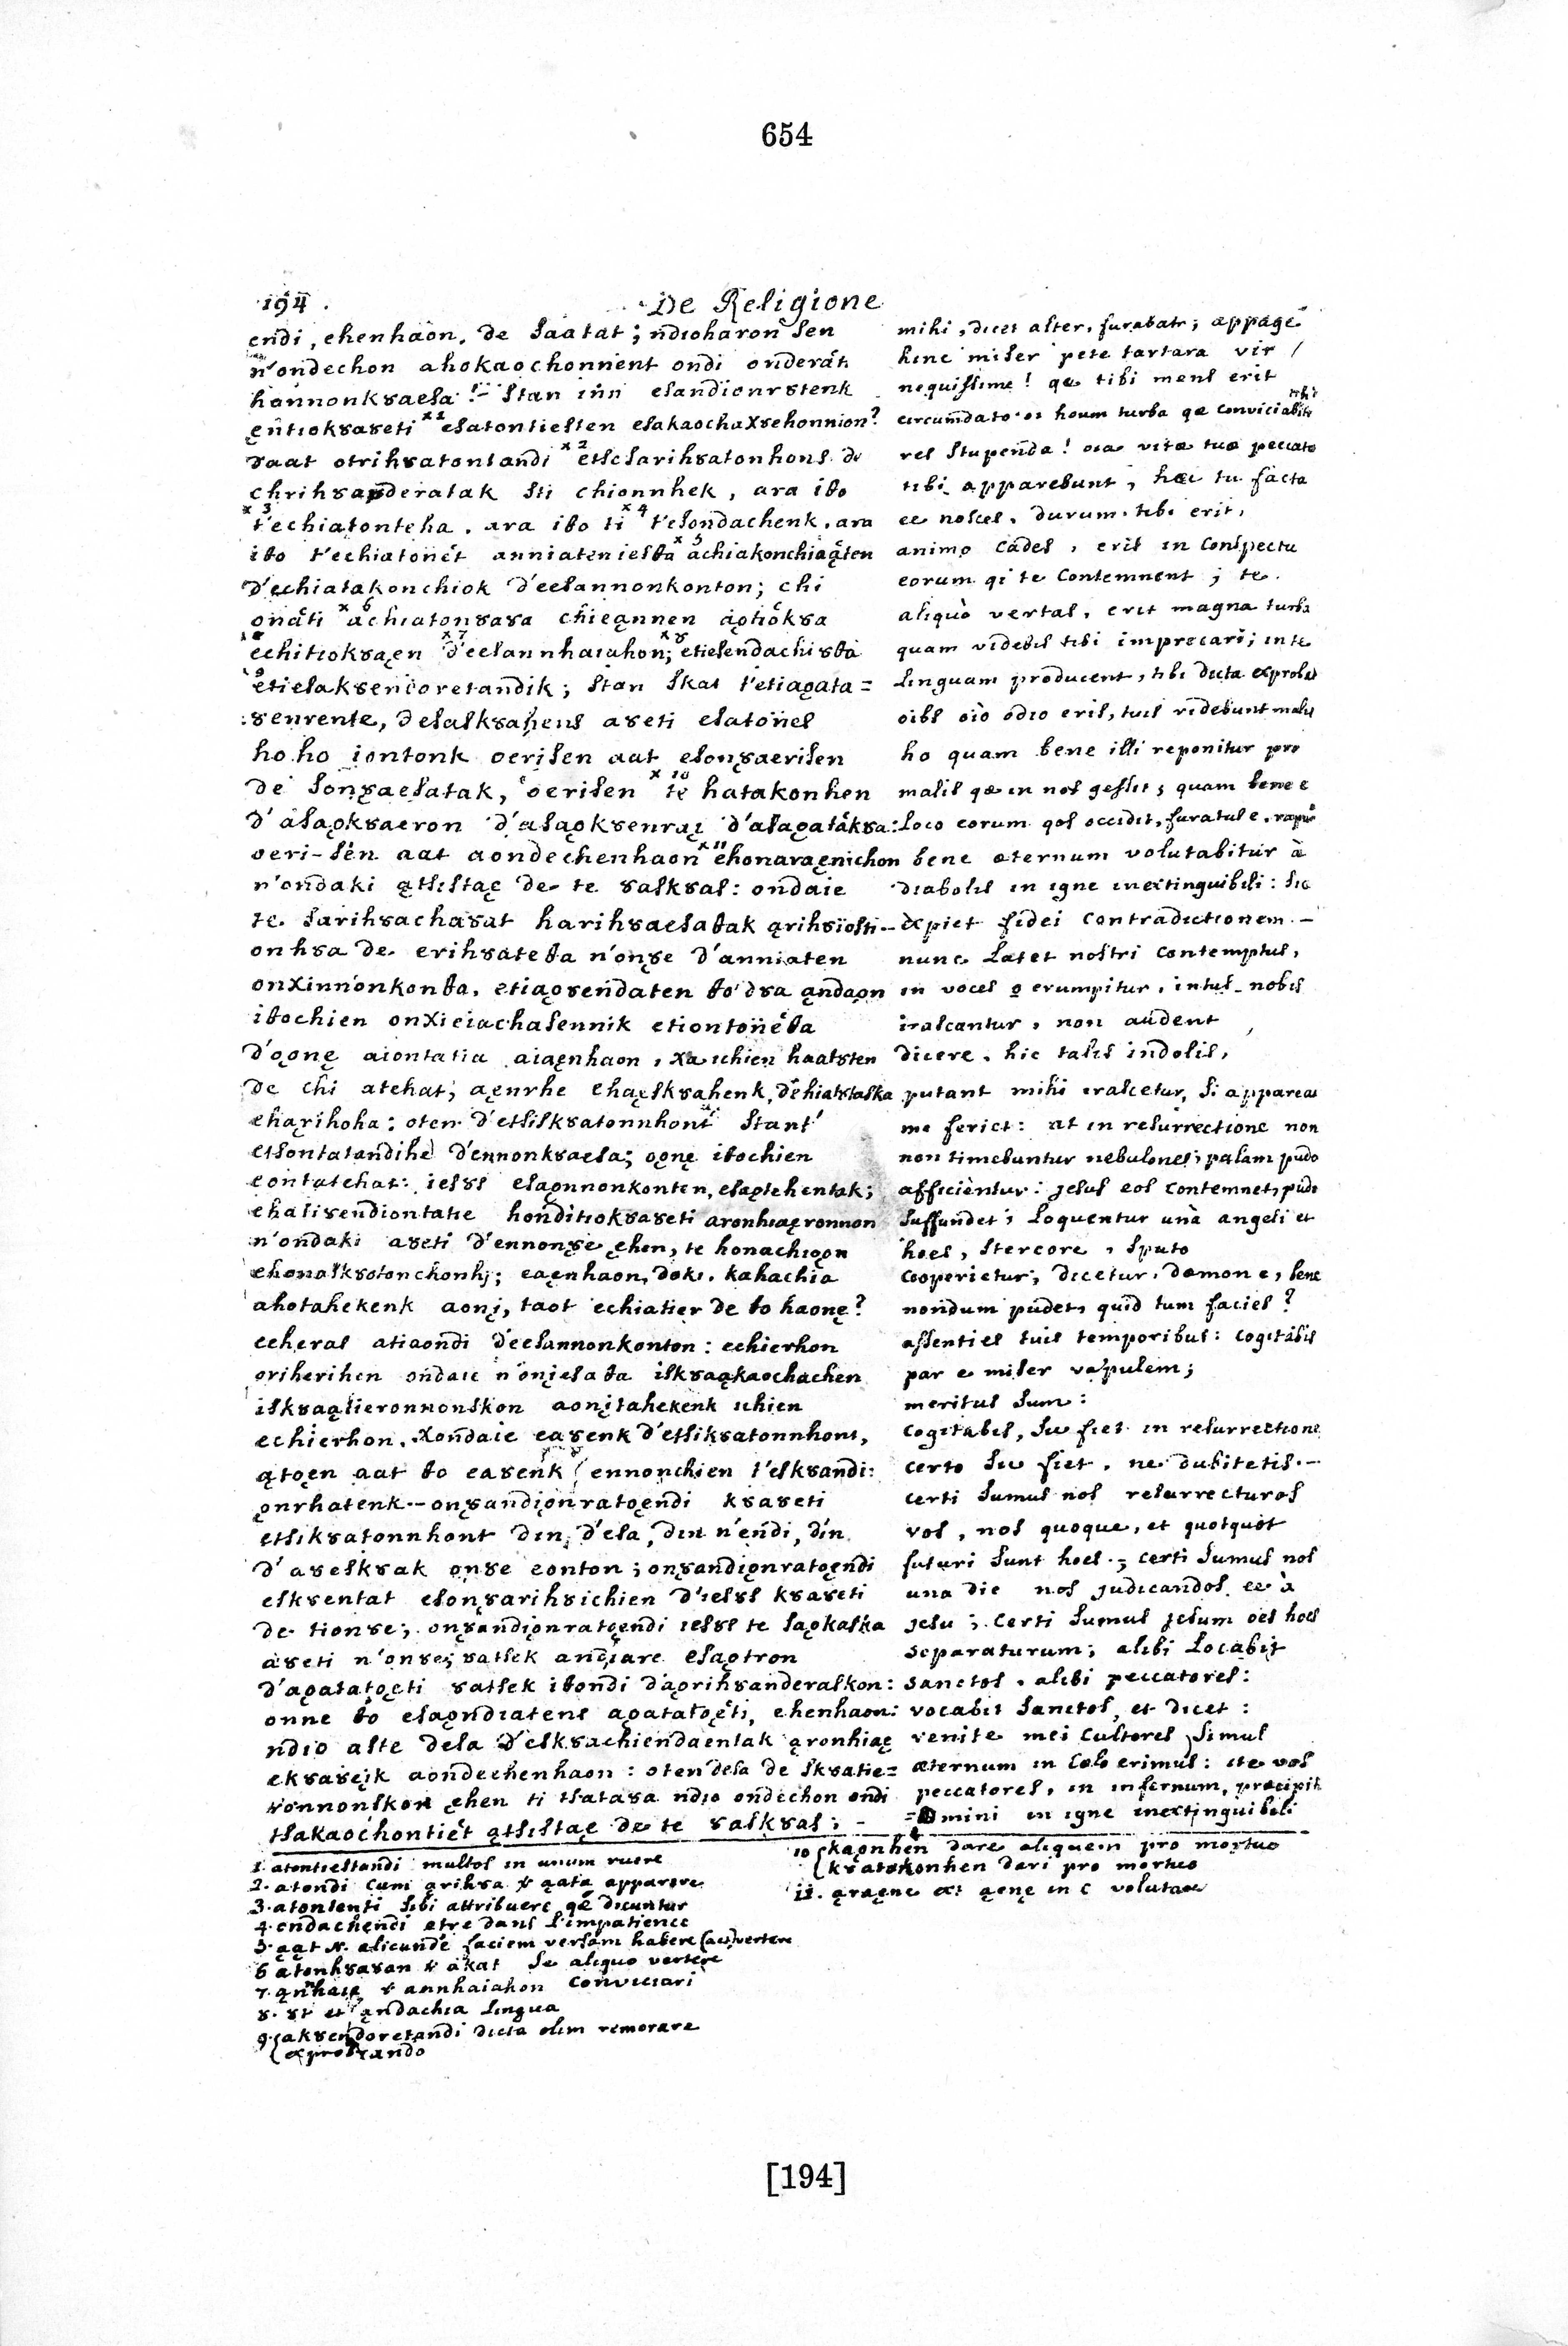 654
194 De Religione
endi, ehenhaon. de saatat; ndioharon sen
n'ondechon ahokaochonnient ondi onderati
hannonkȣaesa! – stan inn esandionrȣtenk
ęntiokȣaȣeti x1 esatontiesten esakaochaxȣehonnion?
ȣaat otrihȣatontandi x2 etsesarihȣatonhons de
chrihȣanderatak sti chionnhek, ara iꝋo
x3 t'echiatonteha. ara iꝋo ti x4 t'esondachenk. ara
iꝋo t'echiatonet anniateniesꝋa x5 achiakonchiaąten
d'echiatakonchiok d'eesannonkonton; chi
onati x6 achiatonȣaȣa chieąnnen ąǫtiokȣa
echitiokȣaen x7 d'eesannhaiahon; x8 etiesendachiȣꝋa
9 etiesakȣendoretandik; stan skat t'etiaǫata=
ȣenrente, desaskȣahens aȣeti esatones
ho ho iontonk oerisen aat esonȣaerisen
de sonȣaesatak, oerisen x10 te hatakonhen
d'asaǫkȣaeron d'asaǫkȣenrai d'asaǫatakȣa:
oeri-sen aat aondechenhaon x11 ehonaraęnichon
n'ondaki ątsistaę de te ȣaskȣas: ondaie
te sarihȣachaȣat harihȣaesaꝋak ąrihȣiosti–
onhȣa de erihȣateꝋa n'onȣe d'anniaten
onxinnonkonꝋa. etiaǫȣendaten ꝋo dȣa ąndaon
iꝋochien onxieiachasennik etiontoneꝋa
d'ǫǫnę aiontatia aiaęnhaon, xa ichien haatȣten
de chi atehat; aęnrhe ehaęskȣahenk, dehiatȣtaska
eharihoha: oten d'etsiskȣatonnhont stant
etsontatandihe d'ennonkȣaesa; oǫnę iꝋochien
eontatehat: iesȣs esaǫnnonkonten, esaǫtehentak;
ehatiȣendiontatie honditiokȣaȣeti aronhiaęronnon
n'ondaki aȣeti d'ennonȣe ęhen, te honachiǫǫn
ehonaskȣotonchonhȷ; eaęnhaon, doki. kahachia
ahotahekenk aonį, taot echiatier de ꝋo haonę?
echeras atiaondi d'eesannonkonton: echierhon
oriherihen ondaie n'oniesaꝋa iskȣaąkaochachen
iskȣaątieronnonskon aonįtahekenk ichien
echierhon. xondaie eaȣenk d'etsikȣatonnhont,
ątoęn aat ꝋo eaȣenk ennonchien t'eskȣandi:
ǫnrhatenk – onȣandiǫnratoęndi kȣaȣeti
etsikȣatonnhont din d'esa, din n'endi, din
d'aȣeskȣak onȣe eonton; onȣandiǫnratoęndi
eskȣentat esonȣarihȣichien d'iesȣs kȣaȣeti
de tionȣe; onȣandiǫnratoęndi iesȣs te saǫkaska
aȣeti n'onȣe; ȣatsek andiare esaǫtron
d'aǫatatoęti ȣatsek iꝋondi d'aǫrihȣanderaskon:
onne ꝋo esaǫndiatens aǫatatoęti, ehenhaon:
ndio aste desa d'eskȣachiendaentak ąronhiaę
ekȣaȣęįk aondechenhaon: oten desa de skȣatie=
ronnonskon ęhen ti tsataȣa ndio ondechon ondi
tsakaochontiet ątsistaę de te ȣaskȣas; –
mihi, dicet alter, furabatr; appage
hinc miser pete tartara vir
nequissime! qæ tibi mens erit
circumdato oi houm turba qæ conviciabitr tibi
res stupenda! oia vitæ tuæ peccata
tibi apparebunt, hæc tu facta
ee nosces. durum tibi erit,
animo cades, eris in conspectu
eorum qi te contemnent; te
aliquò vertas, erit magna turba
quam videbis tibi imprecari; in te
linguam producent, tibi dicta exprobab
oibs oiò odio eris, tuis ridebunt malis
ho quam bene illi reponitur pro
malis qæ in nos gessit; quam bene e
loco eorum qos occidit, furatus e. rapuit
bene æternum volutabitur à
diabolis in igne inextinguibili: sic
expiet fidei contradictionem. –
nunc latet nostri contemptus,
in voces o erumpitur, intus nobis
irascantur, non audent
dicere. hic talis indolis,
putant mihi irascetur, si appareat
me feriet: at in resurrectione non
non timebuntur nebulones, palam pudo
afficientur: jesus eos contemnet, pudo
suffundet; loquentur unà angeli et
hoes, stercore, sputo
cooperietur; dicetur, dæmon e, bene
nondum pudet, quid tum facies?
assenties tuis temporibus: cogitabis
par e miser vapulem;
meritus sum:
cogitabis, sic fiet in resurrectione
certo sic fiet. ne dubitetis. –
certi sumus nos resurrecturos
vos, nos quoque, et quotquot
futuri sunt hoes; certi sumus nos
una die nos judicandos ee à
jesu; certi sumus jesum oes hoes
separaturum; alibi locabit
sanctos, alibi peccatores:
vocabit sanctos, et dicet:
venite mei cultores simul
æternum in cælo erimus: ite vos
peccatores, in infernum, præcipit
=amini in igne inextinguibili
1. atontiestandi multos in unum ruere
2. atondi cum ąrihȣa & ąata apparere
3. atontenti sibi attribuere qæ dicuntur
4. endachendi etre dans l'impatience
5. ąąt N. alicunde faciem versam habere (act) vertere
6 atonhȣaȣan & akat se aliquo vertere
7. ąnhaię & annhaiahon conviciari
8. ȣt et ąndachia lingua
9. { akȣendoretandi dicta olim remorare
{ exprobrando
10 { kaǫnhen dare aliquem pro mortuo
{ kȣatakonhen dari pro mortuo
11. ąraęne ex ąęnę in c volutare
[194]